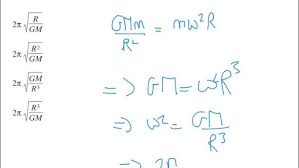 2π√(R/GM)
2π√(R²/GM)
2π√(GM/R³)
2π√(R³/GM)
GMm/R² = mω²R
=> GM = ω²R³
=> ω² = GM/R³
=>